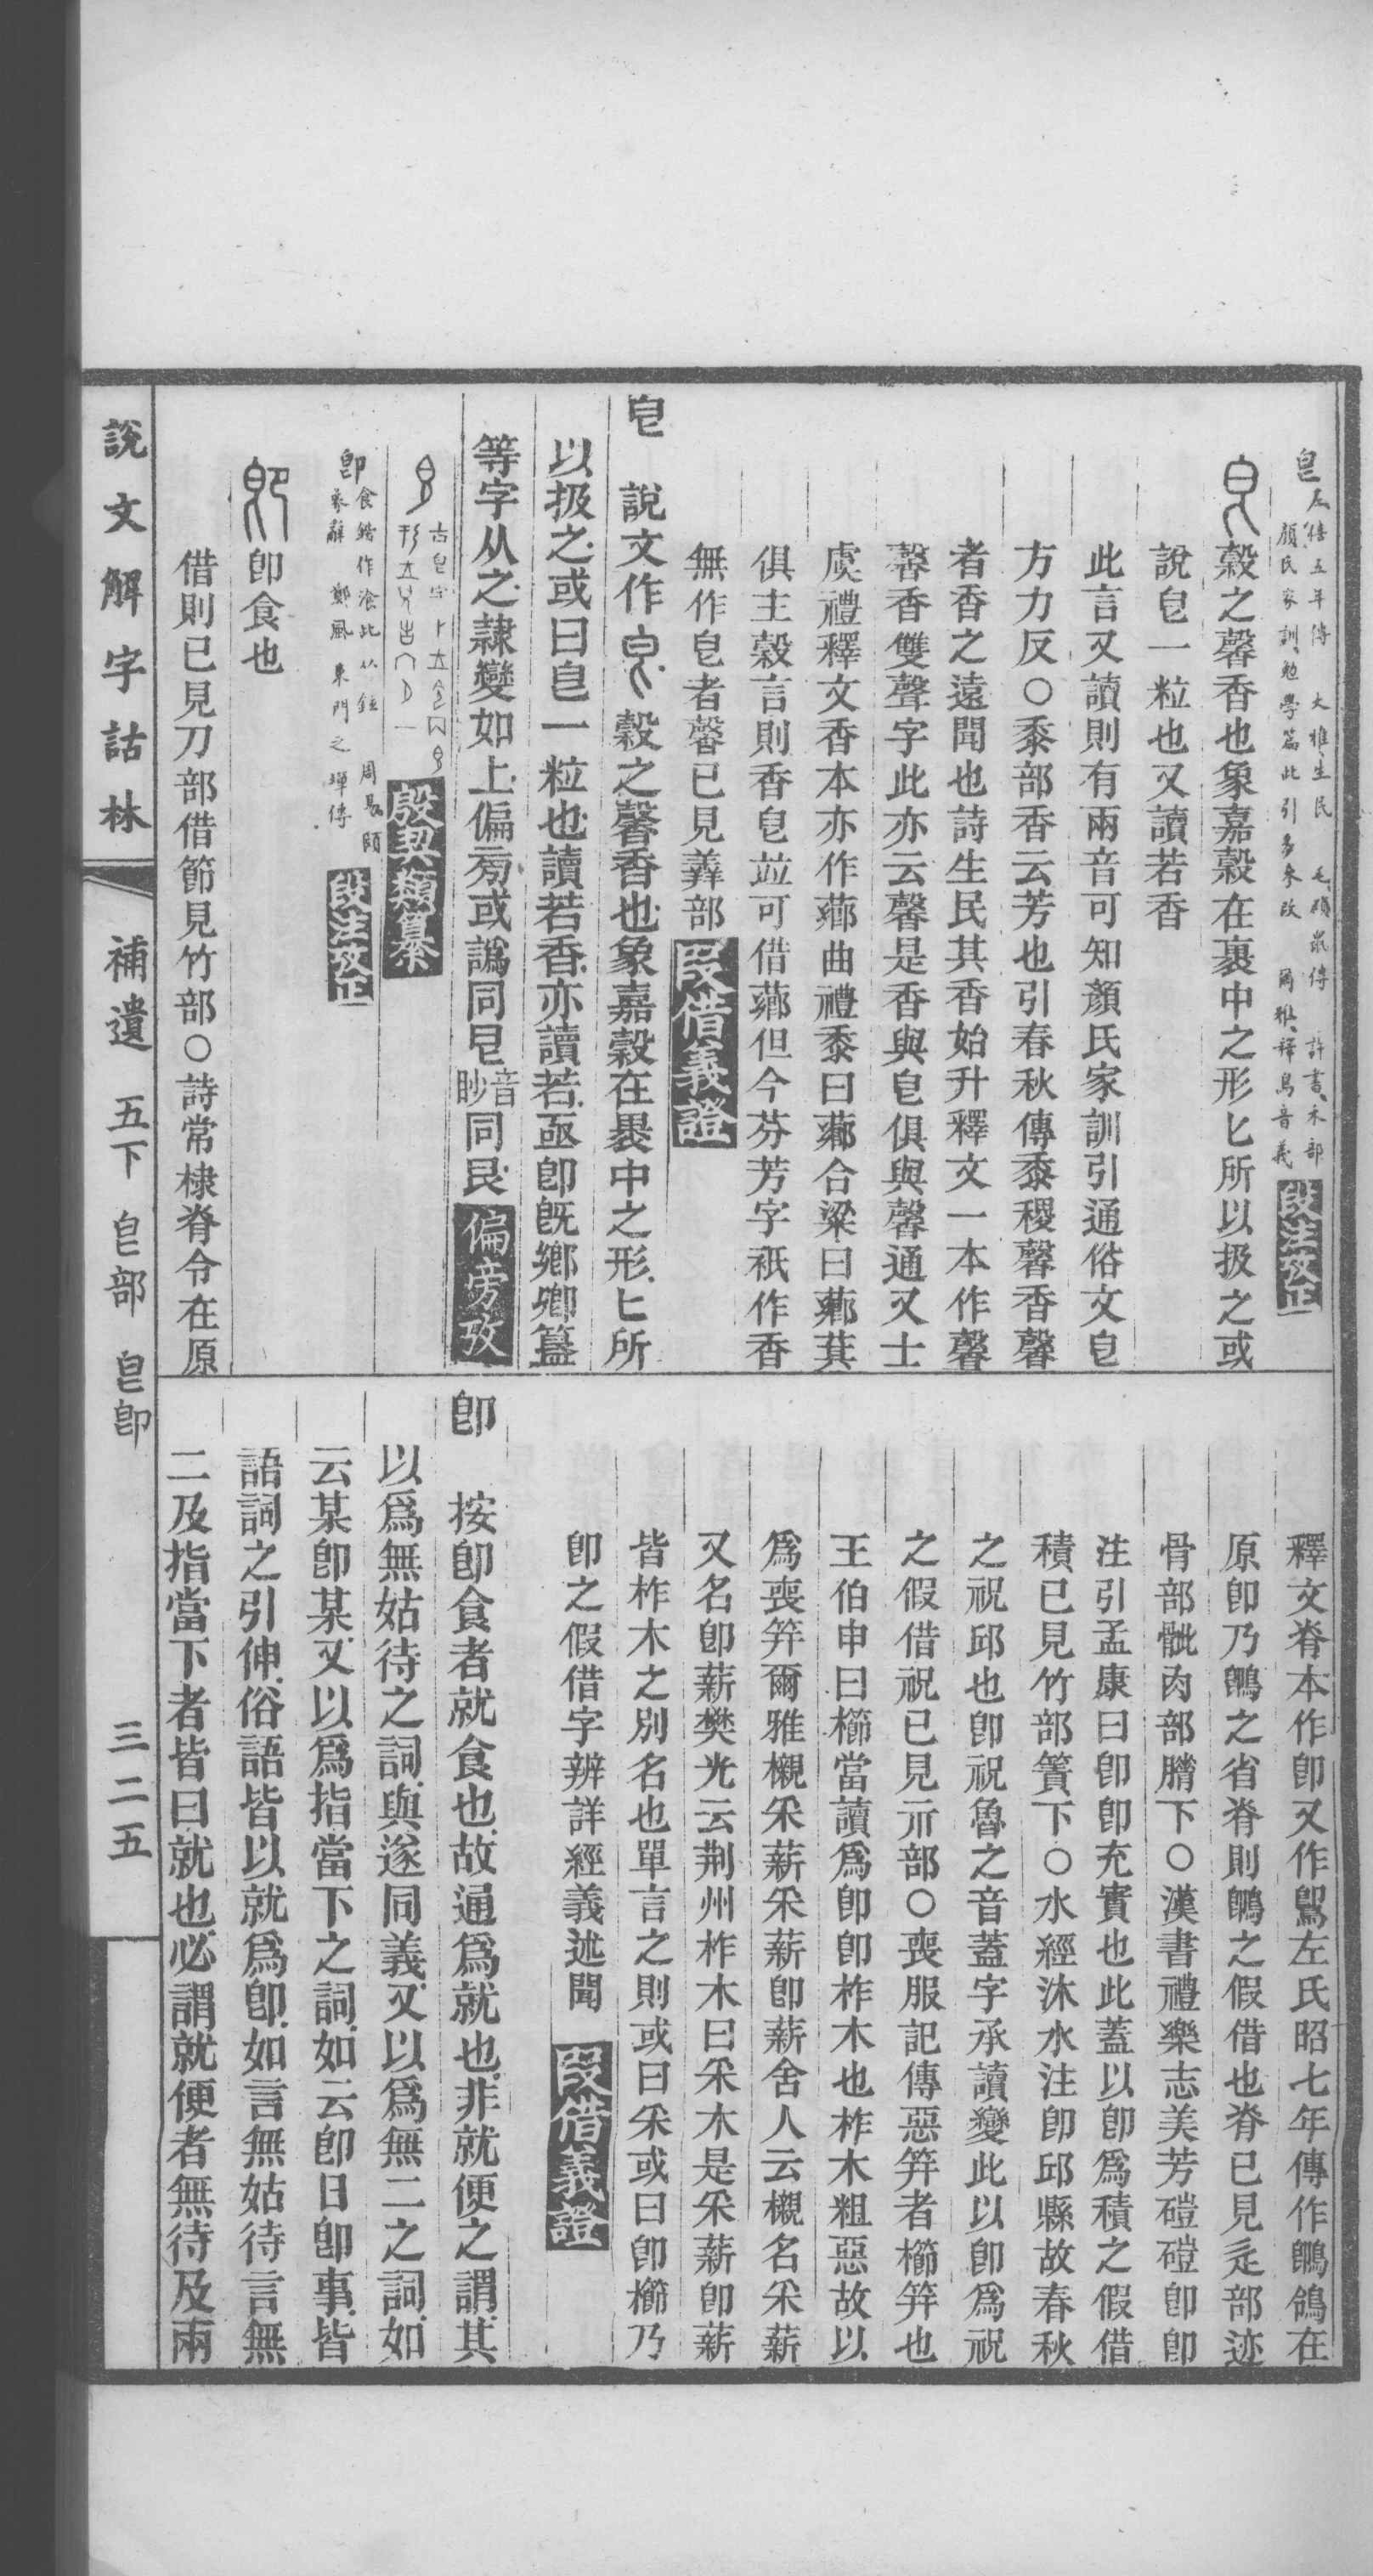 皀左傳五年傳　大雅生民　毛碩鼠傳　許書木部
顏氏家訓勉學篇此引多未改　爾雅釋鳥音義　段注攷正
穀之馨香也象嘉穀在裹中之形匕所以扱之或
說皀一粒也又讀若香
此言又讀則有兩音可知顏氏家訓引通俗文皀
方力反○黍部香云芳也引春秋傳黍稷馨香馨
者香之遠聞也詩生民其香始升釋文一本作馨
馨香雙聲字此亦云馨是香與皀俱與馨通又士
虞禮釋文香本亦作薌曲禮黍曰薌合粱曰薌萁
俱主穀言則香皀竝可借薌但今芬芳字祇作香
無作皀者馨已見羴部　叚借義證
皀　說文作　穀之馨香也象嘉穀在裹中之形匕所
以扱之或曰皀一粒也讀若香亦讀若亟卽旣鄉卿簋
等字从之隸變如上偏旁或譌同皃音眇同艮　偏旁攷
殷契類纂
卽食鍇作飡此从鉉　周易頤
彖辭　鄭風東門之墠傳　段注攷正
卽食也
借則已見刀部借節見竹部○詩常棣脊令在原
釋文脊本作卽又作鴽左氏昭七年傳作鶺鴒在
原卽乃鶺之省脊則鶺之假借也脊已見辵部迹
骨部骴肉部膌下○漢書禮樂志美芳磑磑卽卽
注引孟康曰卽卽充實也此蓋以卽爲積之假借
積已見竹部簀下○水經沭水注卽邱縣故春秋
之祝邱也卽祝魯之音蓋字承讀變此以卽爲祝
之假借祝已見示部○喪服記傳惡笄者櫛笄也
王伯申曰櫛當讀爲卽卽柞木也柞木粗惡故以
爲喪笄爾雅櫬采薪采薪卽薪舍人云櫬名采薪
又名卽薪樊光云荆州柞木曰采木是采薪卽薪
皆柞木之別名也單言之則或曰采或曰卽櫛乃
卽之假借字辨詳經義述聞　叚借義證
卽　按卽食者就食也故通爲就也非就便之謂其
以爲無姑待之詞與遂同義又以爲無二之詞如
云某卽某又以爲指當下之詞如云卽日卽事皆
語詞之引伸俗語皆以就爲卽如言無姑待言無
二及指當下者皆曰就也必謂就便者無待及兩
說文解字詁林　補遺　五下　皀部　皀卽　三二五